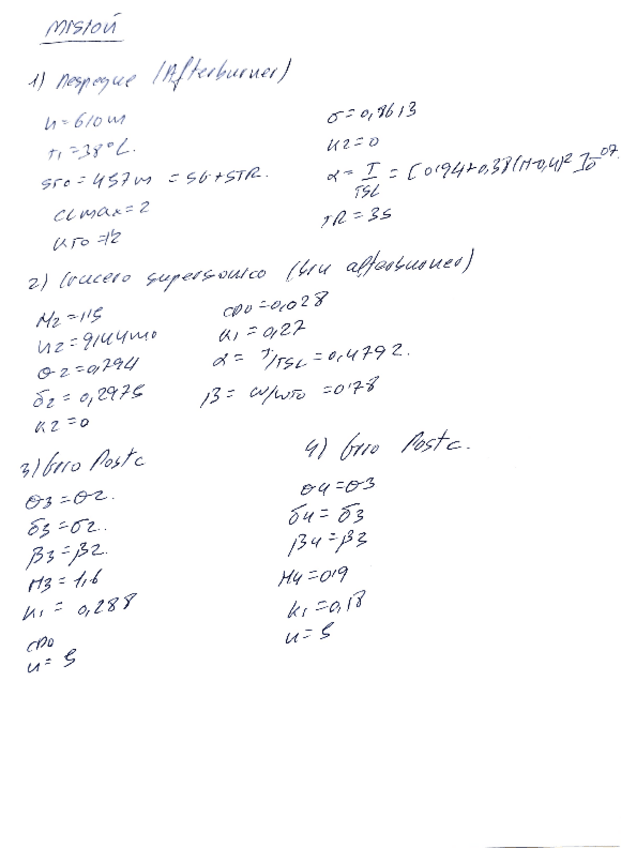 Misión
1) Despegue (Afterburner)
h=610m
T1=38°C.
STO=457m = SG+STR.
CLmax=2
KTO=1'2
σ=0,8613
K2=0
α=T/TSL=[0'94+0,38(M-0,4)²]σ^0'7
TR=3s
2) Crucero supersonico (sin afterburner)
M2=1'5
h2=9,144m
θ2=0,794
δ2=0,2975
K2=0
CD0=0,028
K1=0,27
α=T/TSL=0,4792.
β=W/WTO=0'78
3) Giro PostC
θ3=θ2.
δ3=δ2.
β3=β2.
M3=1,6
K1=0,288
CD0
n=5
4) Giro PostC.
θ4=θ3
δ4=δ3
β4=β3
M4=0'9
K1=0,18
n=5